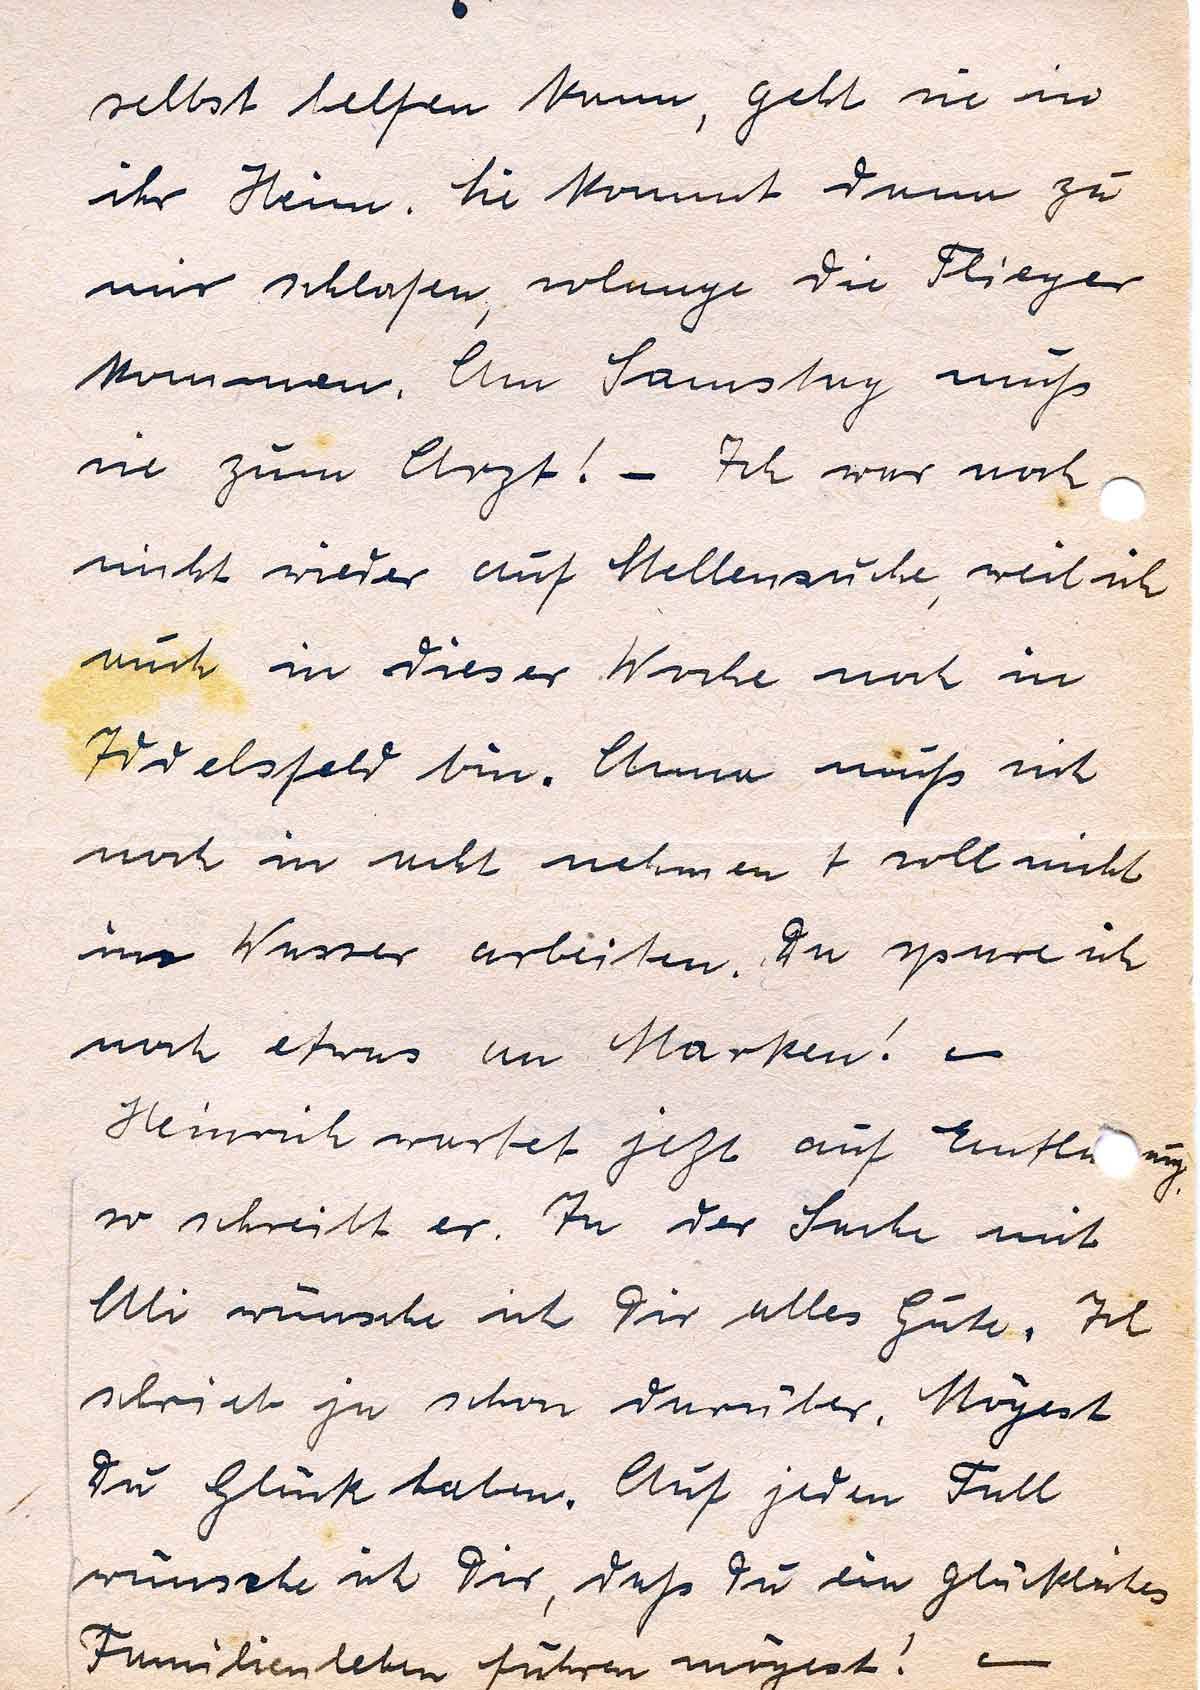 selbst helfen kann, geht sie in
ihr Heim. Sie kommt dann zu
mir schlafen, solange die Flieger
kommen. Am Samstag muß
sie zum Arzt! – Ich war noch
nicht wieder auf Stellensuche, weil ich
auch in dieser Woche noch in
Iddelsfeld bin. Anna muß sich
noch in acht nehmen + soll nicht
im Wasser arbeiten. Da spare ich
noch etwas an Marken! –
Heinrich wartet jetzt auf
so schreibt er. In der Sache mit
Alli wünsche ich Dir alles Gute. Ich
schrieb ja schon darüber. Mögest
Du Glück haben. Auf jeden Fall
wünsche ich Dir, daß Du ein glückliches
Familienleben führen mögest! –